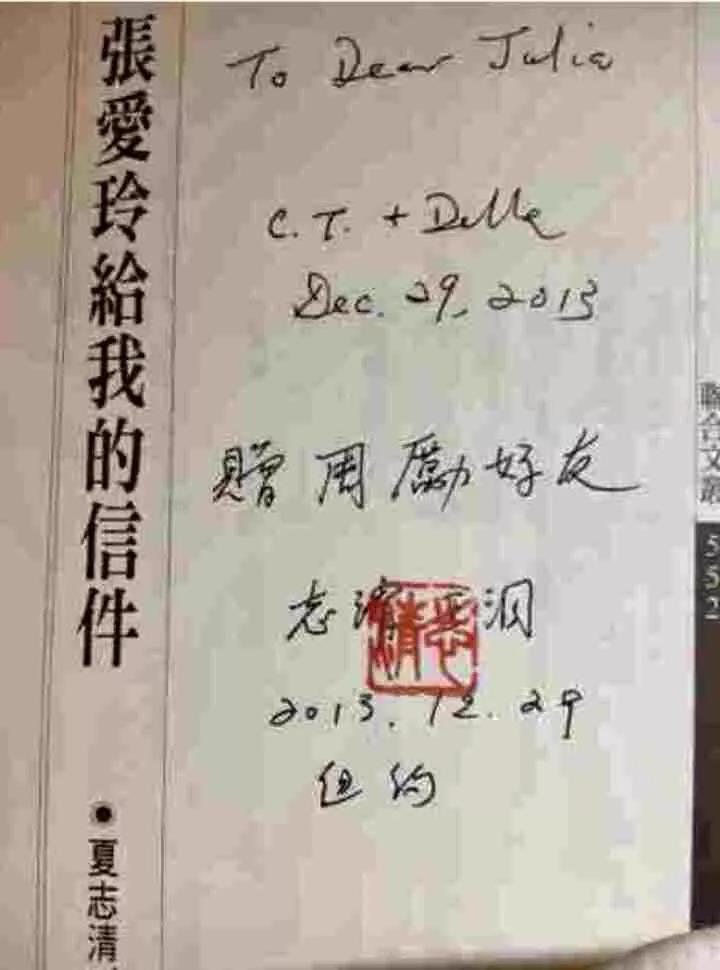 張愛玲給我的信件
●夏志清
To Dear Julia
C. T. + Della
Dec. 29, 2013
贈周勵好友
志清 王洞
2013. 12. 29
纽约
聯合文叢
552